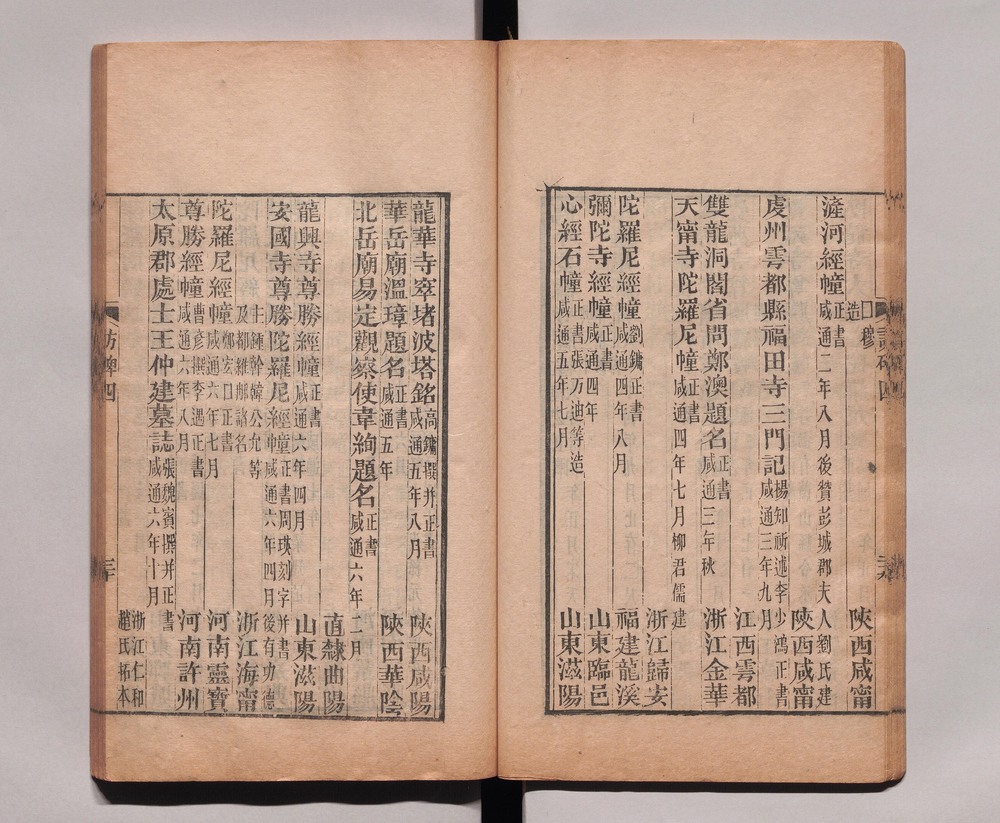 造□穆 陝西咸甯
滻河經幢正書咸通二年八月後贊彭城郡夫人劉氏建 陝西咸甯
虔州雩都縣福田寺三門記楊知新述李少鴻正書咸通三年九月 江西雩都
雙龍洞閣省問鄭澳題名正書咸通三年秋 浙江金華
天甯寺陀羅尼幢正書咸通四年七月柳君儒建 浙江歸安
陀羅尼經幢劉鏞正書咸通四年八月 福建龍溪
彌陀寺經幢正書咸通四年 山東臨邑
心經石幢正書張万迪等造咸通五年七月 山東滋陽
龍華寺窣堵波塔銘高鏞撰并正書咸通五年八月 陝西咸陽
華岳廟溫璋題名正書咸通五年 陝西華陰
北岳廟易定觀察使韋絢題名正書咸通六年二月 直隸曲陽
龍興寺尊勝經幢正書咸通六年四月 山東滋陽
安國寺尊勝陀羅尼經幢正書周瑛刻字并書咸通六年四月後有功德
主鍾幹韓公允等及都維那諮名 浙江海甯
陀羅尼經幢鄭宏□正書咸通六年七月 河南靈寶
尊勝經幢曹彥撰李遇正書咸通六年八月 河南許州
太原郡處士王仲建墓誌張魏賓撰并正書咸通六年十月 浙江仁和趙氏拓本
訪碑四